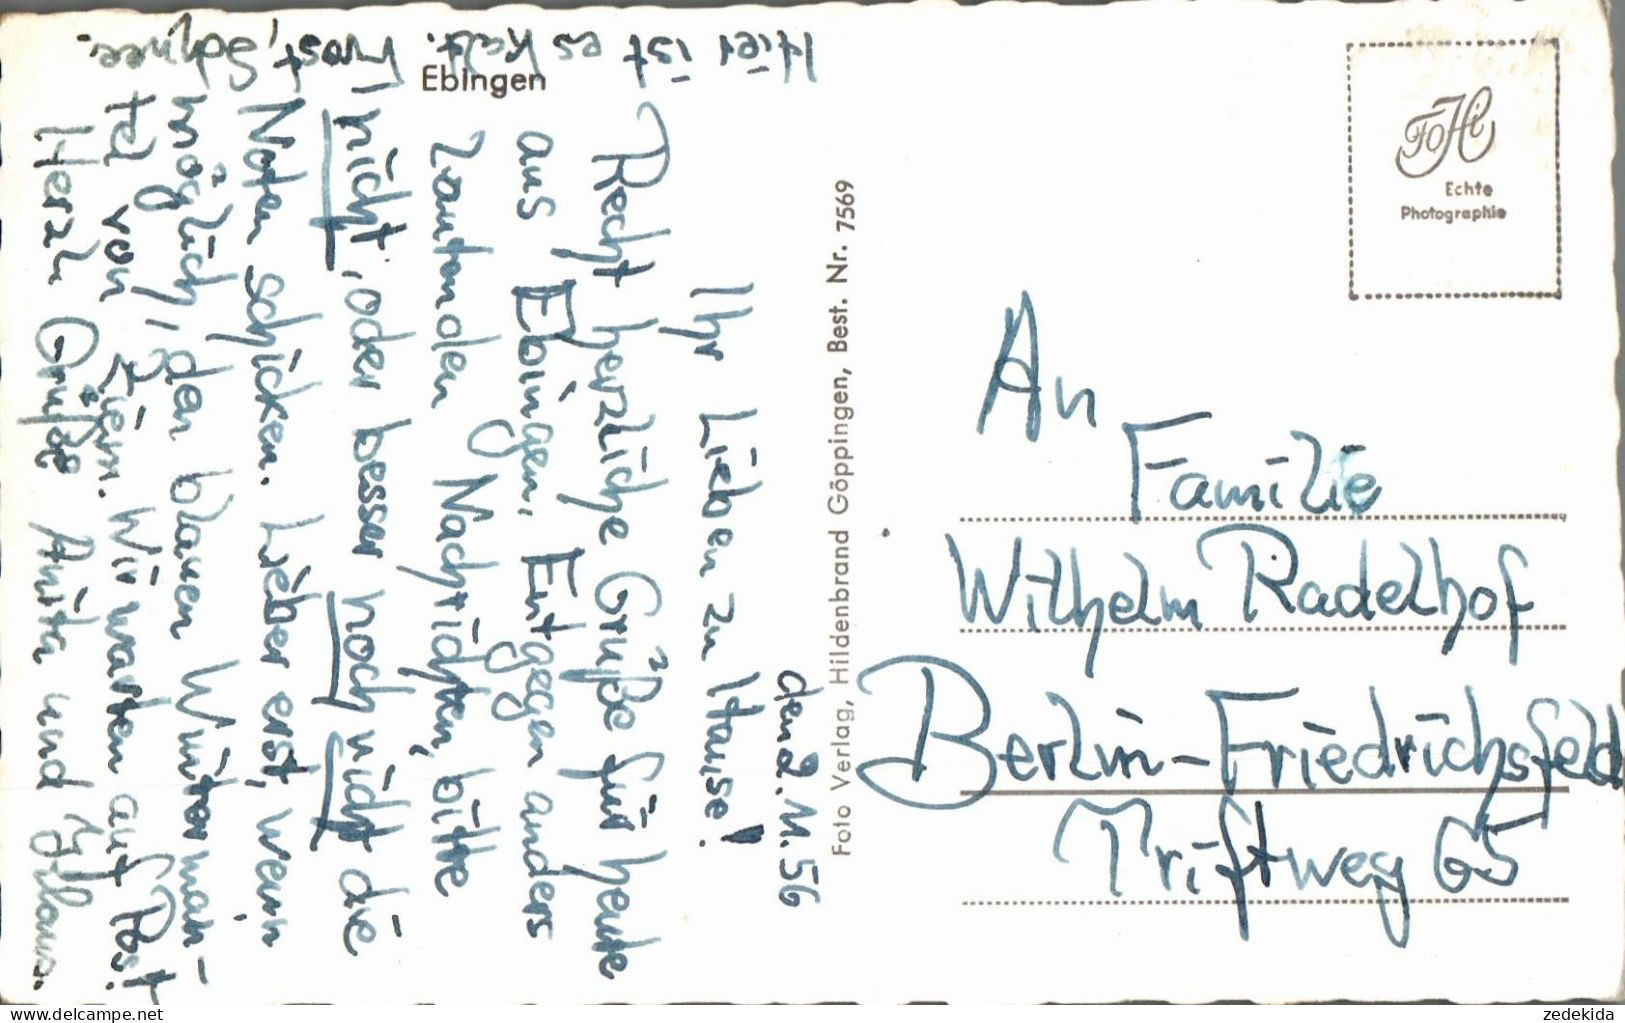 Ebingen
den 2.11.56
Ihr Lieben zu Hause!
Recht herzliche Grüße für heute
aus Ebingen. Entgegen anders
lautenden Nachrichten, bitte
nicht, oder besser noch nicht die
Noten schicken. Lieber erst, wenn
möglich, den blauen Winterman-
tel von Ziem. Wir warten auf Post.
Herzl. Grüße Anita und Klaus.
Hier ist es kalt. Frost, Schnee.
Foto Verlag, Hildenbrand Göppingen, Best. Nr. 7569
FoHi
Echte
Photographie
An
Familie
Wilhelm Radelhof
Berlin-Friedrichsfeld
Triftweg 65
zedekida
www.delcampe.net